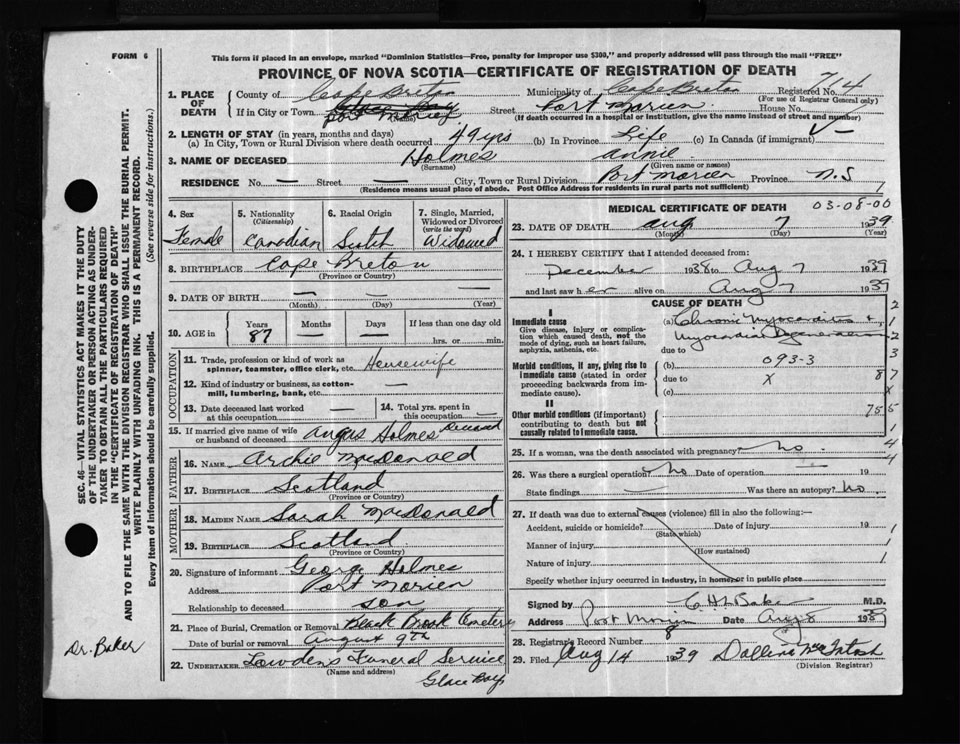 FORM 6
This form if placed in an envelope, marked "Dominion Statistics—Free, penalty for improper use $300," and properly addressed will pass through the mail "FREE"
PROVINCE OF NOVA SCOTIA—CERTIFICATE OF REGISTRATION OF DEATH
1. PLACE OF DEATH County of Cape Breton Municipality of Cape Breton Registered No. 714
(For use of Registrar General only)
If in City or Town Glace Bay Port Morien Street Port Morien House No.
(Name) (If death occurred in a hospital or institution, give the name instead of street and number)
2. LENGTH OF STAY (in years, months and days)
(a) In City, Town or Rural Division where death occurred 49 yrs (b) In Province Life (c) In Canada (if immigrant)
3. NAME OF DECEASED Holmes Annie
(Surname) (Given name or names)
RESIDENCE No. — Street — City, Town or Rural Division Port Morien Province N.S
(Residence means usual place of abode. Post Office Address for residents in rural parts not sufficient)
4. Sex Female
5. Nationality (Citizenship) Canadian
6. Racial Origin Scotch
7. Single, Married, Widowed or Divorced (write the word) Widowed
8. BIRTHPLACE Cape Breton
(Province or Country)
9. DATE OF BIRTH — — —
(Month) (Day) (Year)
10. AGE in Years 87 Months — Days — If less than one day old
hrs. or min.
OCCUPATION
11. Trade, profession or kind of work as spinner, teamster, office clerk, etc. Housewife
12. Kind of industry or business, as cotton-mill, lumbering, bank, etc. —
13. Date deceased last worked at this occupation — 14. Total yrs. spent in this occupation —
15. If married give name of wife or husband of deceased Angus Holmes Deceased
FATHER
16. NAME Archie MacDonald
17. BIRTHPLACE Scotland
(Province or Country)
MOTHER
18. MAIDEN NAME Sarah MacDonald
19. BIRTHPLACE Scotland
(Province or Country)
20. Signature of informant George Holmes
Address Port Morien
Relationship to deceased son
21. Place of Burial, Cremation or Removal Black Brook Cemetery
Date of burial or removal August 9th
22. UNDERTAKER Lowden's Funeral Service
(Name and address)
Glace Bay
MEDICAL CERTIFICATE OF DEATH 03-08-00
23. DATE OF DEATH Aug 7 1939
(Month) (Day) (Year)
24. I HEREBY CERTIFY that I attended deceased from:
December 1938 to Aug 7 1939
and last saw her alive on Aug 7 1939
CAUSE OF DEATH
I
Immediate cause
Give disease, injury or complication which caused death, not the mode of dying, such as heart failure, asphyxia, asthenia, etc.
(a) Chronic Myocarditis +
Myocardial
due to
Morbid conditions, if any, giving rise to immediate cause (stated in order proceeding backwards from immediate cause).
(b) 093-3
due to X
(c)
II
Other morbid conditions (if important) contributing to death but not causally related to immediate cause.
25. If a woman, was the death associated with pregnancy? No.
26. Was there a surgical operation? No Date of operation —
State findings — Was there an autopsy? No.
27. If death was due to external causes (violence) fill in also the following:—
Accident, suicide or homicide? Date of injury 19
(State which)
Manner of injury
(How sustained)
Nature of injury
Specify whether injury occurred in industry, in home, or in public place
Signed by C H L Baker M.D.
Address Port Morien Date Aug 8 1939
28. Registrar's Record Number 8
29. Filed Aug 14 1939
(Division Registrar)
SEC. 46—VITAL STATISTICS ACT MAKES IT THE DUTY
OF THE UNDERTAKER OR PERSON ACTING AS UNDERTAKER TO OBTAIN ALL THE PARTICULARS REQUIRED
IN THE "CERTIFICATE OF REGISTRATION OF DEATH"
AND TO FILE THE SAME WITH THE DIVISION REGISTRAR WHO SHALL ISSUE THE BURIAL PERMIT.
WRITE PLAINLY WITH UNFADING INK. THIS IS A PERMANENT RECORD.
Every item of information should be carefully supplied. (See reverse side for instructions.)
Dr. Baker